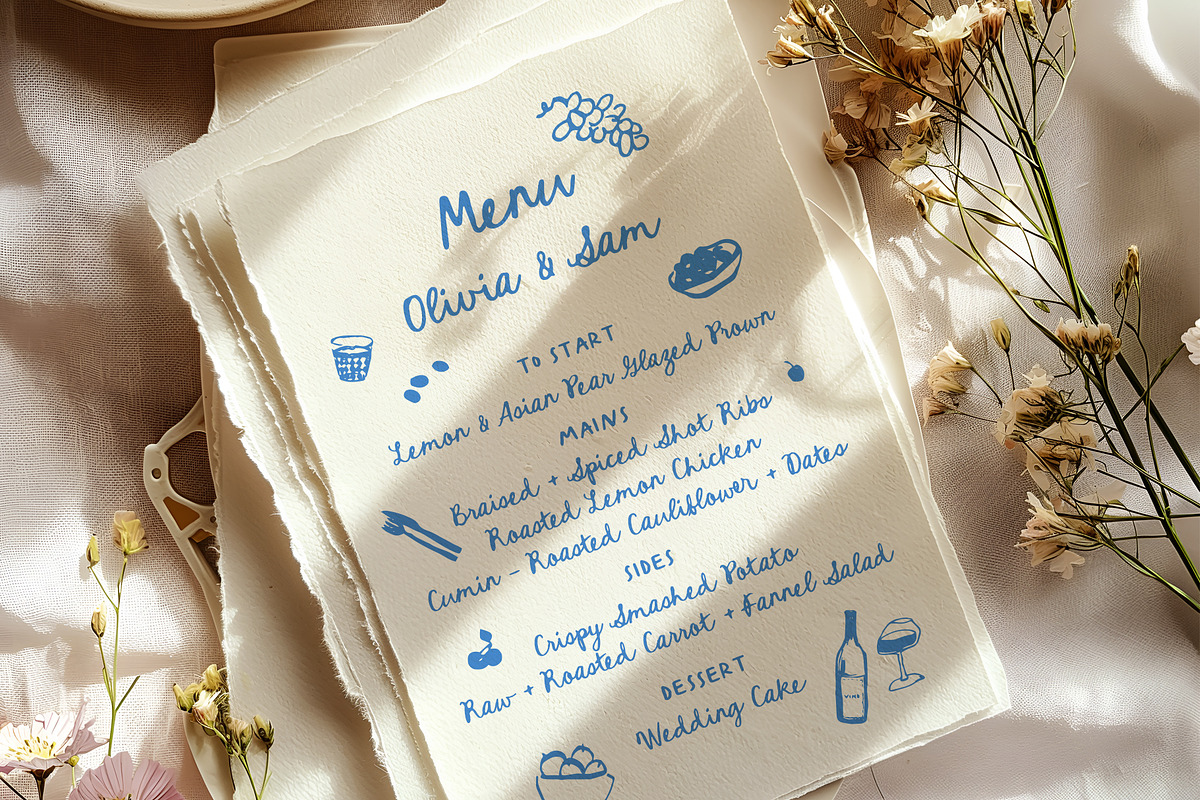 Menu
Olivia & Sam
TO START
Lemon & Asian Pear Glazed Prown
MAINS
Braised + Spiced Shot Ribs
Roasted Lemon Chicken
Cumin - Roasted Cauliflower + Dates
SIDES
Crispy Smashed Potato
Raw + Roasted Carrot + Fannel Salad
DESSERT
Wedding Cake
VINO